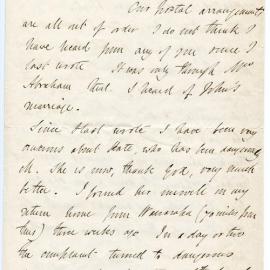 Our postal arrangements
are all out of order I do not think I
have heard from any of you since I
last wrote It was only through Mrs
Abraham that I heard of John's
marriage.
Since I last wrote I have been very
anxious about Kate, who has been dangerously
ill. She is now, thank God, very much
better. I found her unwell on my
return home from ( miles from
this) three weeks ago In a day or two
the complaint turned to dangerous